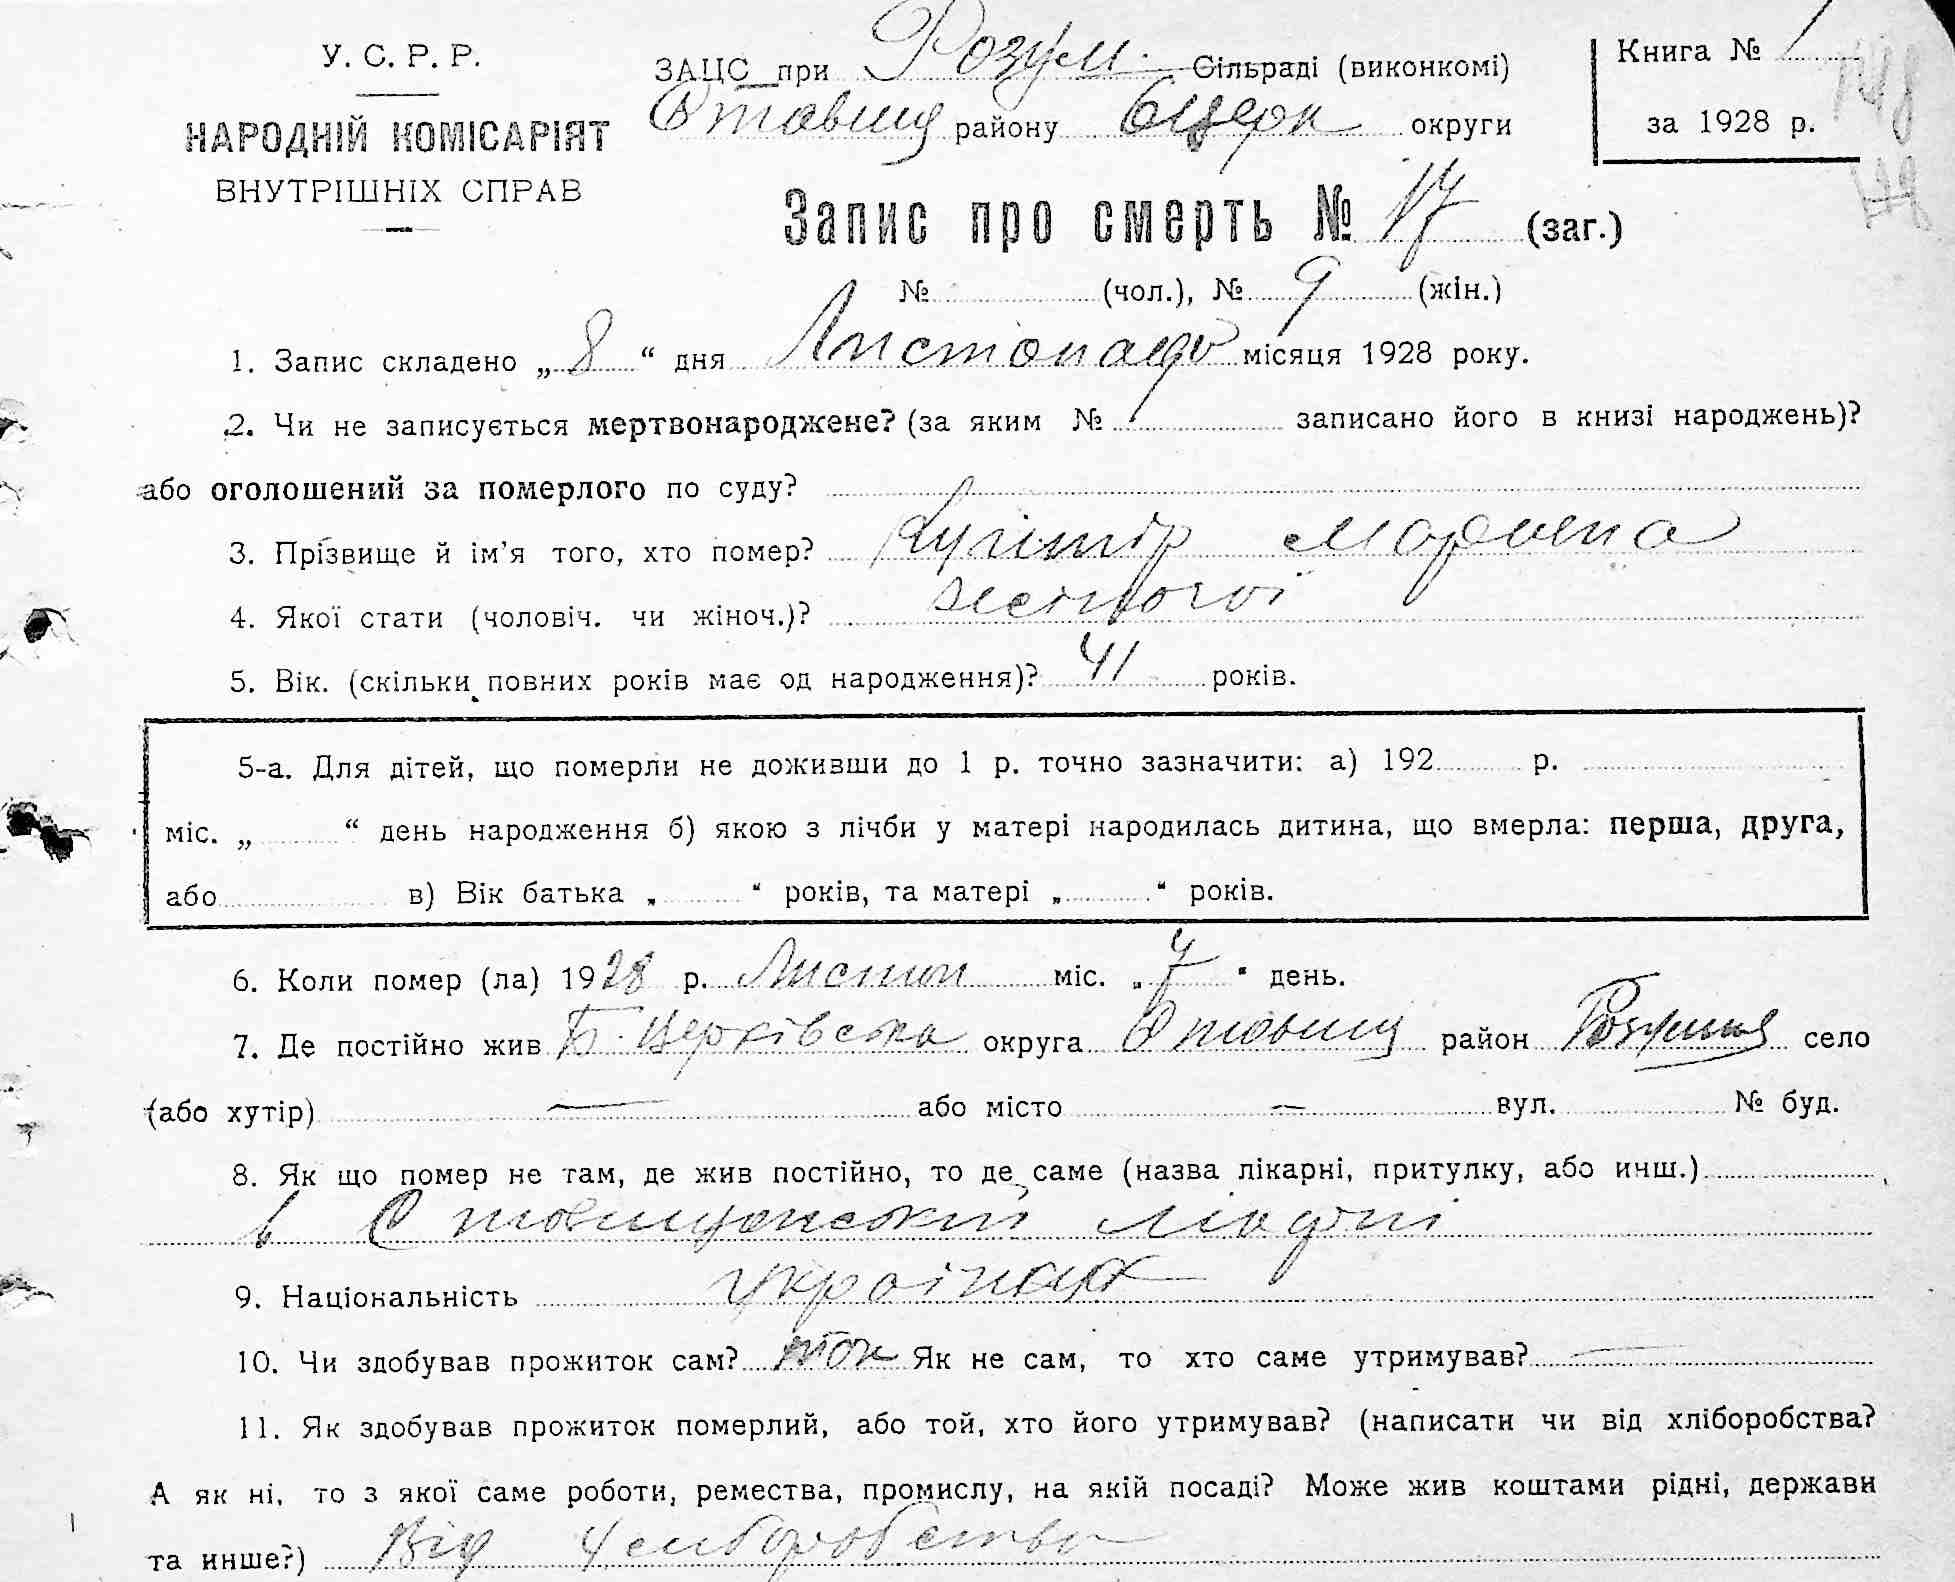 У. С. Р. Р.
НАРОДНІЙ КОМІСАРІЯТ
ВНУТРІШНІХ СПРАВ
ЗАЦС при Розум. Сільраді (виконкомі)
Ставищ району Б Церк округи
Книга № 1
за 1928 р.
148
Запис про смерть № 17 (заг.)
№ (чол.), № 9 (жін.)
1. Запис складено „ 8 “ дня Листопада місяця 1928 року.
2. Чи не записується мертвонароджене? (за яким № записано його в книзі народжень)?
або оголошений за померлого по суду?
3. Прізвище й ім'я того, хто помер? Мар'яна
4. Якої стати (чоловіч. чи жіноч.)? жіночої
5. Вік. (скільки повних років має од народження)? 41 років.
5-а. Для дітей, що померли не доживши до 1 р. точно зазначити: а) 192 р.
міс. „ “ день народження б) якою з лічби у матері народилась дитина, що вмерла: перша, друга,
або в) Вік батька „ “ років, та матері „ “ років.
6. Коли помер (ла) 1928 р. Листоп міс. „ 7 “ день.
7. Де постійно жив Б. Церківська округа Ставищ район село
(або хутір) — або місто — вул. № буд.
8. Як що помер не там, де жив постійно, то де саме (назва лікарні, притулку, або инш.)
в Ставищанський лікарні
9. Національність українка
10. Чи здобував прожиток сам? так Як не сам, то хто саме утримував? —
11. Як здобував прожиток померлий, або той, хто його утримував? (написати чи від хліборобства?
А як ні, то з якої саме роботи, ремества, промислу, на якій посаді? Може жив коштами рідні, держави
та инше?) Від хліборобства